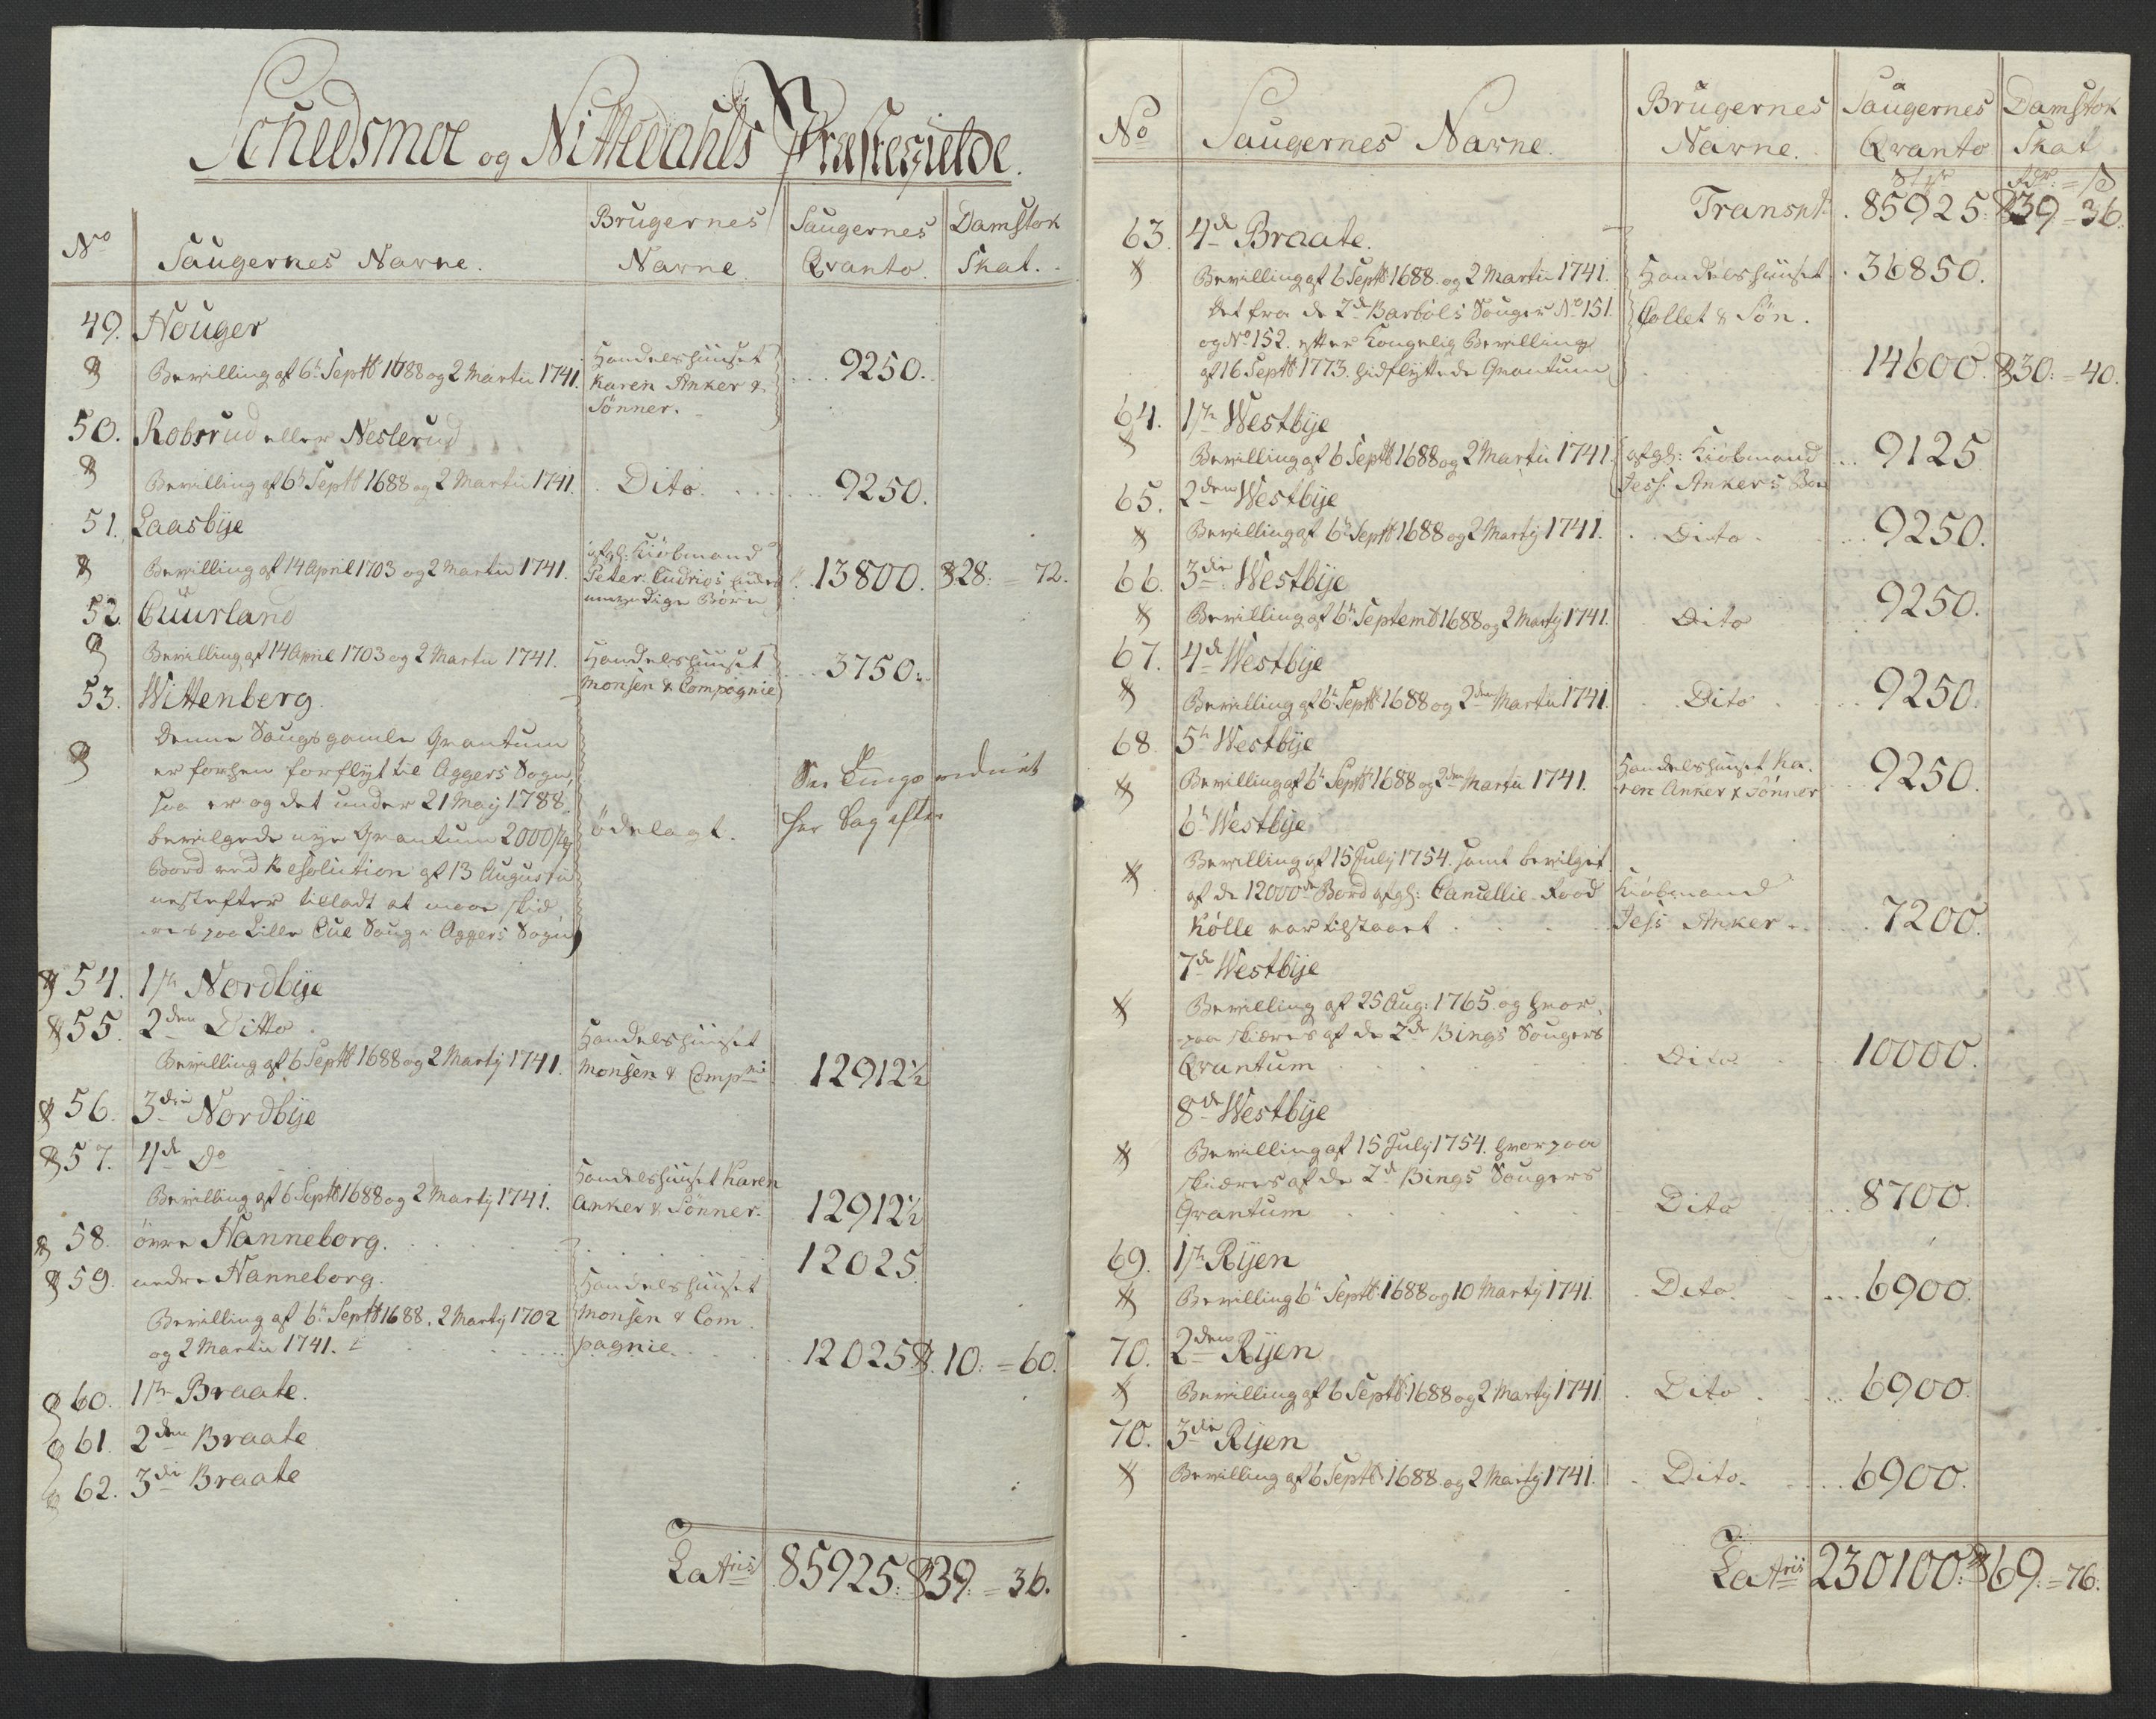 Schedsmoe og Nittedahls Præstegielde.
No Saugernes Navne. Brugernes Navne Saugernes Qvanto. Damstok Skat.
49. Houger
Bevilling af 6te Septb 1688 og 2 Martii 1741. Handelshuuset Karen Anker & Sönner. 9250.
50. Robsrud eller Neslerud
Bevilling af 6te Septb 1688 og 2 Martii 1741. Dito. 9250.
51. Laasbÿe
Bevilling af 14 April 1703 og 2 Martii 1741. afgl: Kiöbmand Peter umyndige Börn 13800. 28: = 72.
52. Cuurland
Bevilling af 14 April 1703 og 2 Martii 1741. Handelshuuset Monsen & Compagnie 3750:
53. Wittenberg.
Denne Saugs gamle Qvantum
er forhen forflÿt til Aggers Sogn,
saa er og det under 21 Maÿ 1788
bevilgede nÿe Qvantum 2000
Bord ved Resolution af 13 Augusti ödelagt. her bag efter
nestefter tilladt at maae skiæ-
res paa Lille Saug i Aggers Sogn
54. 1ste Nordbÿe
55. 2den Ditto
Bevilling af 6 Septb 1688 og 2 Martÿ 1741. Handelshuuset Monsen & Compni 12912½
56. 3die Nordbÿe
57. 4de Do
Bevilling af 6 Septb 1688 og 2 Martÿ 1741. Handelshuuset Karen Anker & Sönner. 12912½
58. övre Hanneborg. 12025.
59. nedre Hanneborg. Handelshuuset
Bevilling af 6te Septb 1688. 2 Martÿ 1702 Monsen & Com
og 2 Martii 1741. pagnie. 12025. 10: = 60.
60. 1ste Braate.
61. 2den Braate
62. 3die Braate
Latris 85925: 39: = 36.
No Saugernes Navne. Brugernes Navne. Saugernes Qvanto Damstok Skat
Transpt. 85925: 39 = 36.
63. 4de Braate.
Bevilling af 6 Septb 1688. og 2 Martii 1741. Handelshuuset 36850.
Det fra de 2de Barböls Sauger No 151. Collet & Sön.
og No 152. efter Kongelig Bevilling
af 16 Septb 1773. hidflÿttede Qvantum 14600. 30: = 40.
64. 1ste Westbÿe
Bevilling af 6 Septb 1688 og 2 Martii 1741. afgl: Kiöbmand Jess. Ankers Boe 9125
65. 2den Westbÿe
Bevilling af 6te Septb 1688 og 2 Martÿ 1741. Dito 9250.
66. 3die Westbÿe
Bevilling af 6te Septemb 1688 og 2 Martÿ 1741. Dito 9250.
67. 4de Westbÿe
Bevilling af 6te Septb 1688 og 2den Martii 1741. Dito 9250.
68. 5te Westbÿe
Bevilling af 6te Septb 1688 og 2den Martii 1741. Handelshuuset Ka-ren Anker & Sönner 9250.
6te Westbÿe
Bevilling af 15 Julÿ 1754. samt bevilget
af de 12000de Bord afgl: Cancellie Raad Kiöbmand
Kölle var tilstaaet Jess Anker 7200.
7de Westbÿe
Bevilling af 25 Aug: 1765 og hvor-
paa skiæres af de 2de Bings Saugers
Qvantum Dito 10000.
8de Westbÿe
Bevilling af 15 Julÿ 1754. hvorpaa
skiæres af de 2de Bings Saugers
Qvantum Dito 8700.
69. 1ste Rÿen
Bevilling 6te Septb 1688 og 10 Martÿ 1741. Dito 6900.
70. 2den Rÿen
Bevilling af 6 Septb 1688 og 2 Martÿ 1741. Dito 6900.
70. 3die Rÿen
Bevilling af 6 Septb 1688 og 2 Martÿ 1741. Dito. 6900.
Latris 230100: 69: = 76.